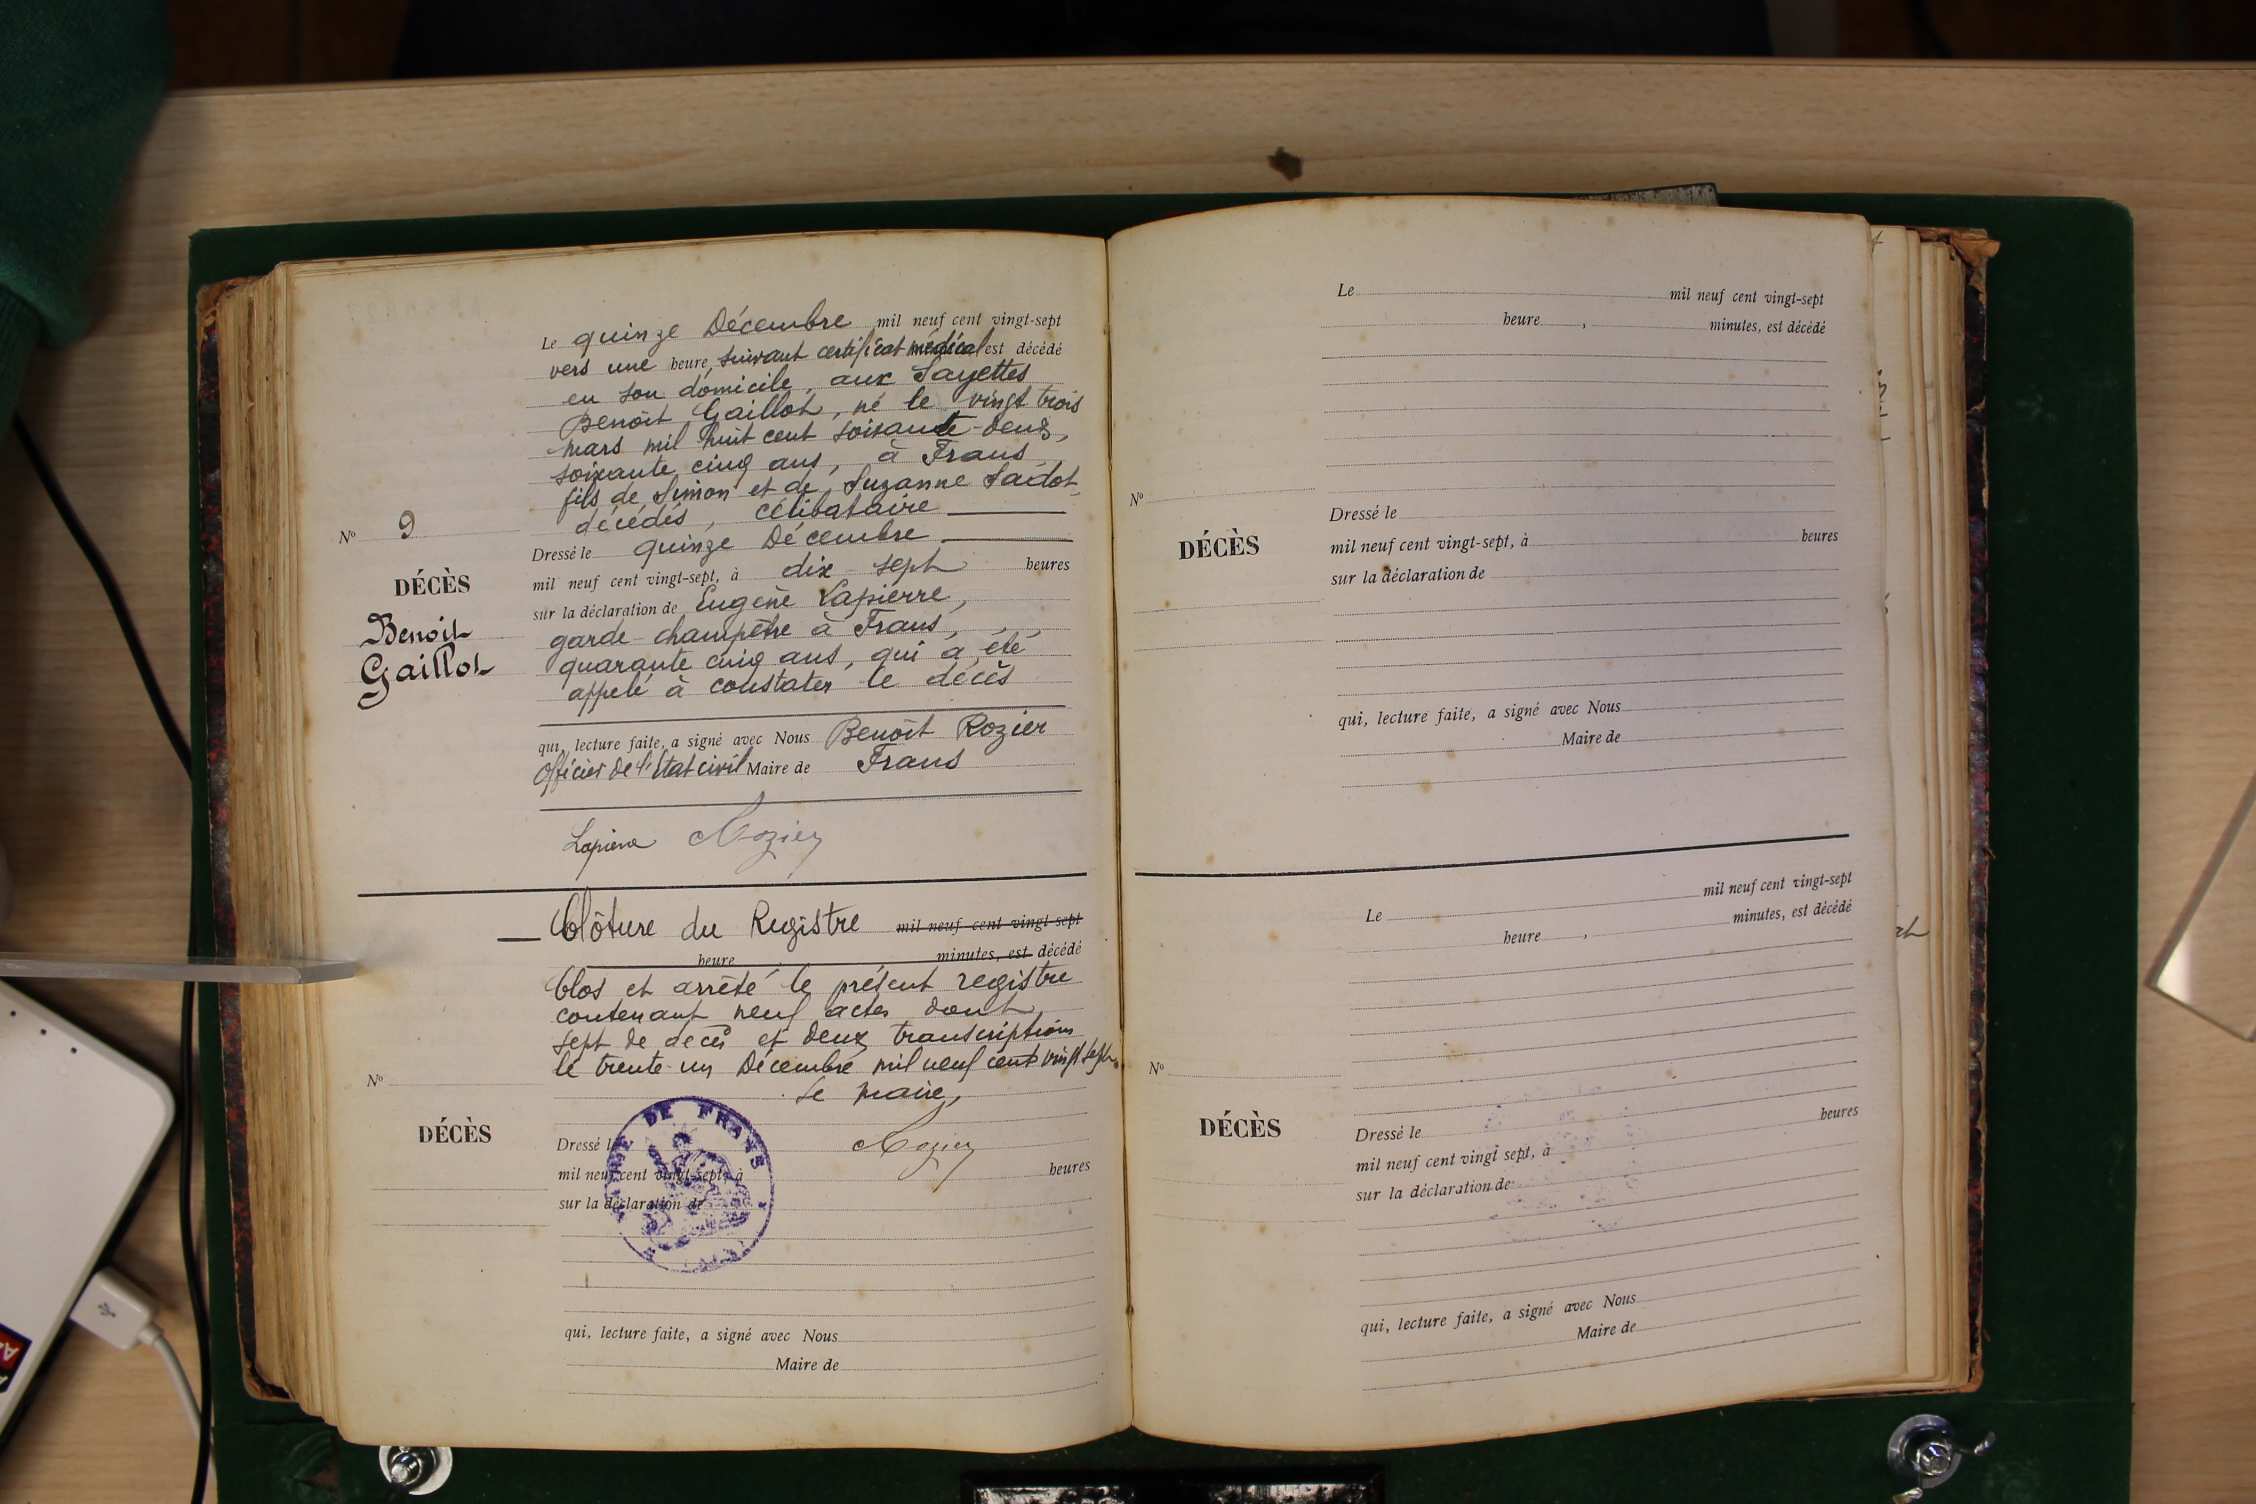 Le quinze Décembre mil neuf cent vingt-sept
vers une heure, suivant certificat médical est décédé
en son domicile, aux Sayettes
Benoît Gaillot, né le vingt trois
mars mil huit cent soixante-deux,
soixante cinq ans, à Frans
fils de Simon et de Suzanne Sadot
décédés, célibataire
Nº 9
DÉCÈS
Benoit
Gaillot
Dressé le quinze Décembre
mil neuf cent vingt-sept, à dix sept heures
sur la déclaration de Eugène Lapierre,
garde-champêtre à Frans,
quarante cinq ans, qui a été
appelé à constater le décès
qui, lecture faite, a signé avec Nous Benoît Rozier
Officier de l'Etat civil Maire de Frans
Lapierre Rozier
Clôture du Registre mil neuf cent vingt-sept
heure minutes, est décédé
Clos et arrêté le présent registre
contenant neuf actes dont
sept de décès et deux transcriptions
le trente-un Décembre mil neuf cent vingt sept.
Le maire,
Nº
DÉCÈS
DE FRANS
Rozier
Dressé le
mil neuf cent vingt-sept, à heures
sur la déclaration de
qui, lecture faite, a signé avec Nous
Maire de
Le mil neuf cent vingt-sept
heure , minutes, est décédé
Nº
DÉCÈS
Dressé le
mil neuf cent vingt-sept, à heures
sur la déclaration de
qui, lecture faite, a signé avec Nous
Maire de
Le mil neuf cent vingt-sept
heure , minutes, est décédé
Nº
DÉCÈS
Dressé le heures
mil neuf cent vingt sept, à
sur la déclaration de
qui, lecture faite, a signé avec Nous
Maire de